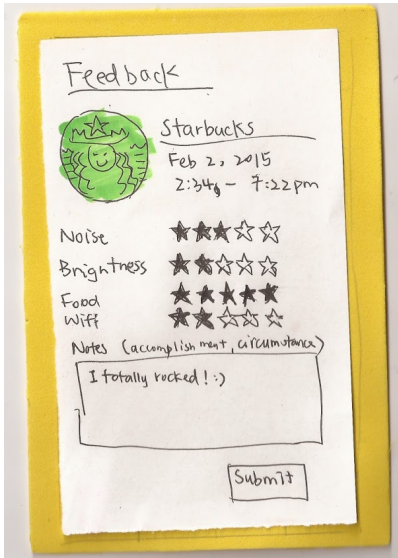 Feedback
Starbucks
Feb 2, 2015
2:34 - 7:22pm
Noise ★★★☆☆
Brigntness ★★☆☆☆
Food ★★★★★
Wifi ★★☆☆☆
Notes (accomplishment, circumstance)
I totally rocked! :)
Submit